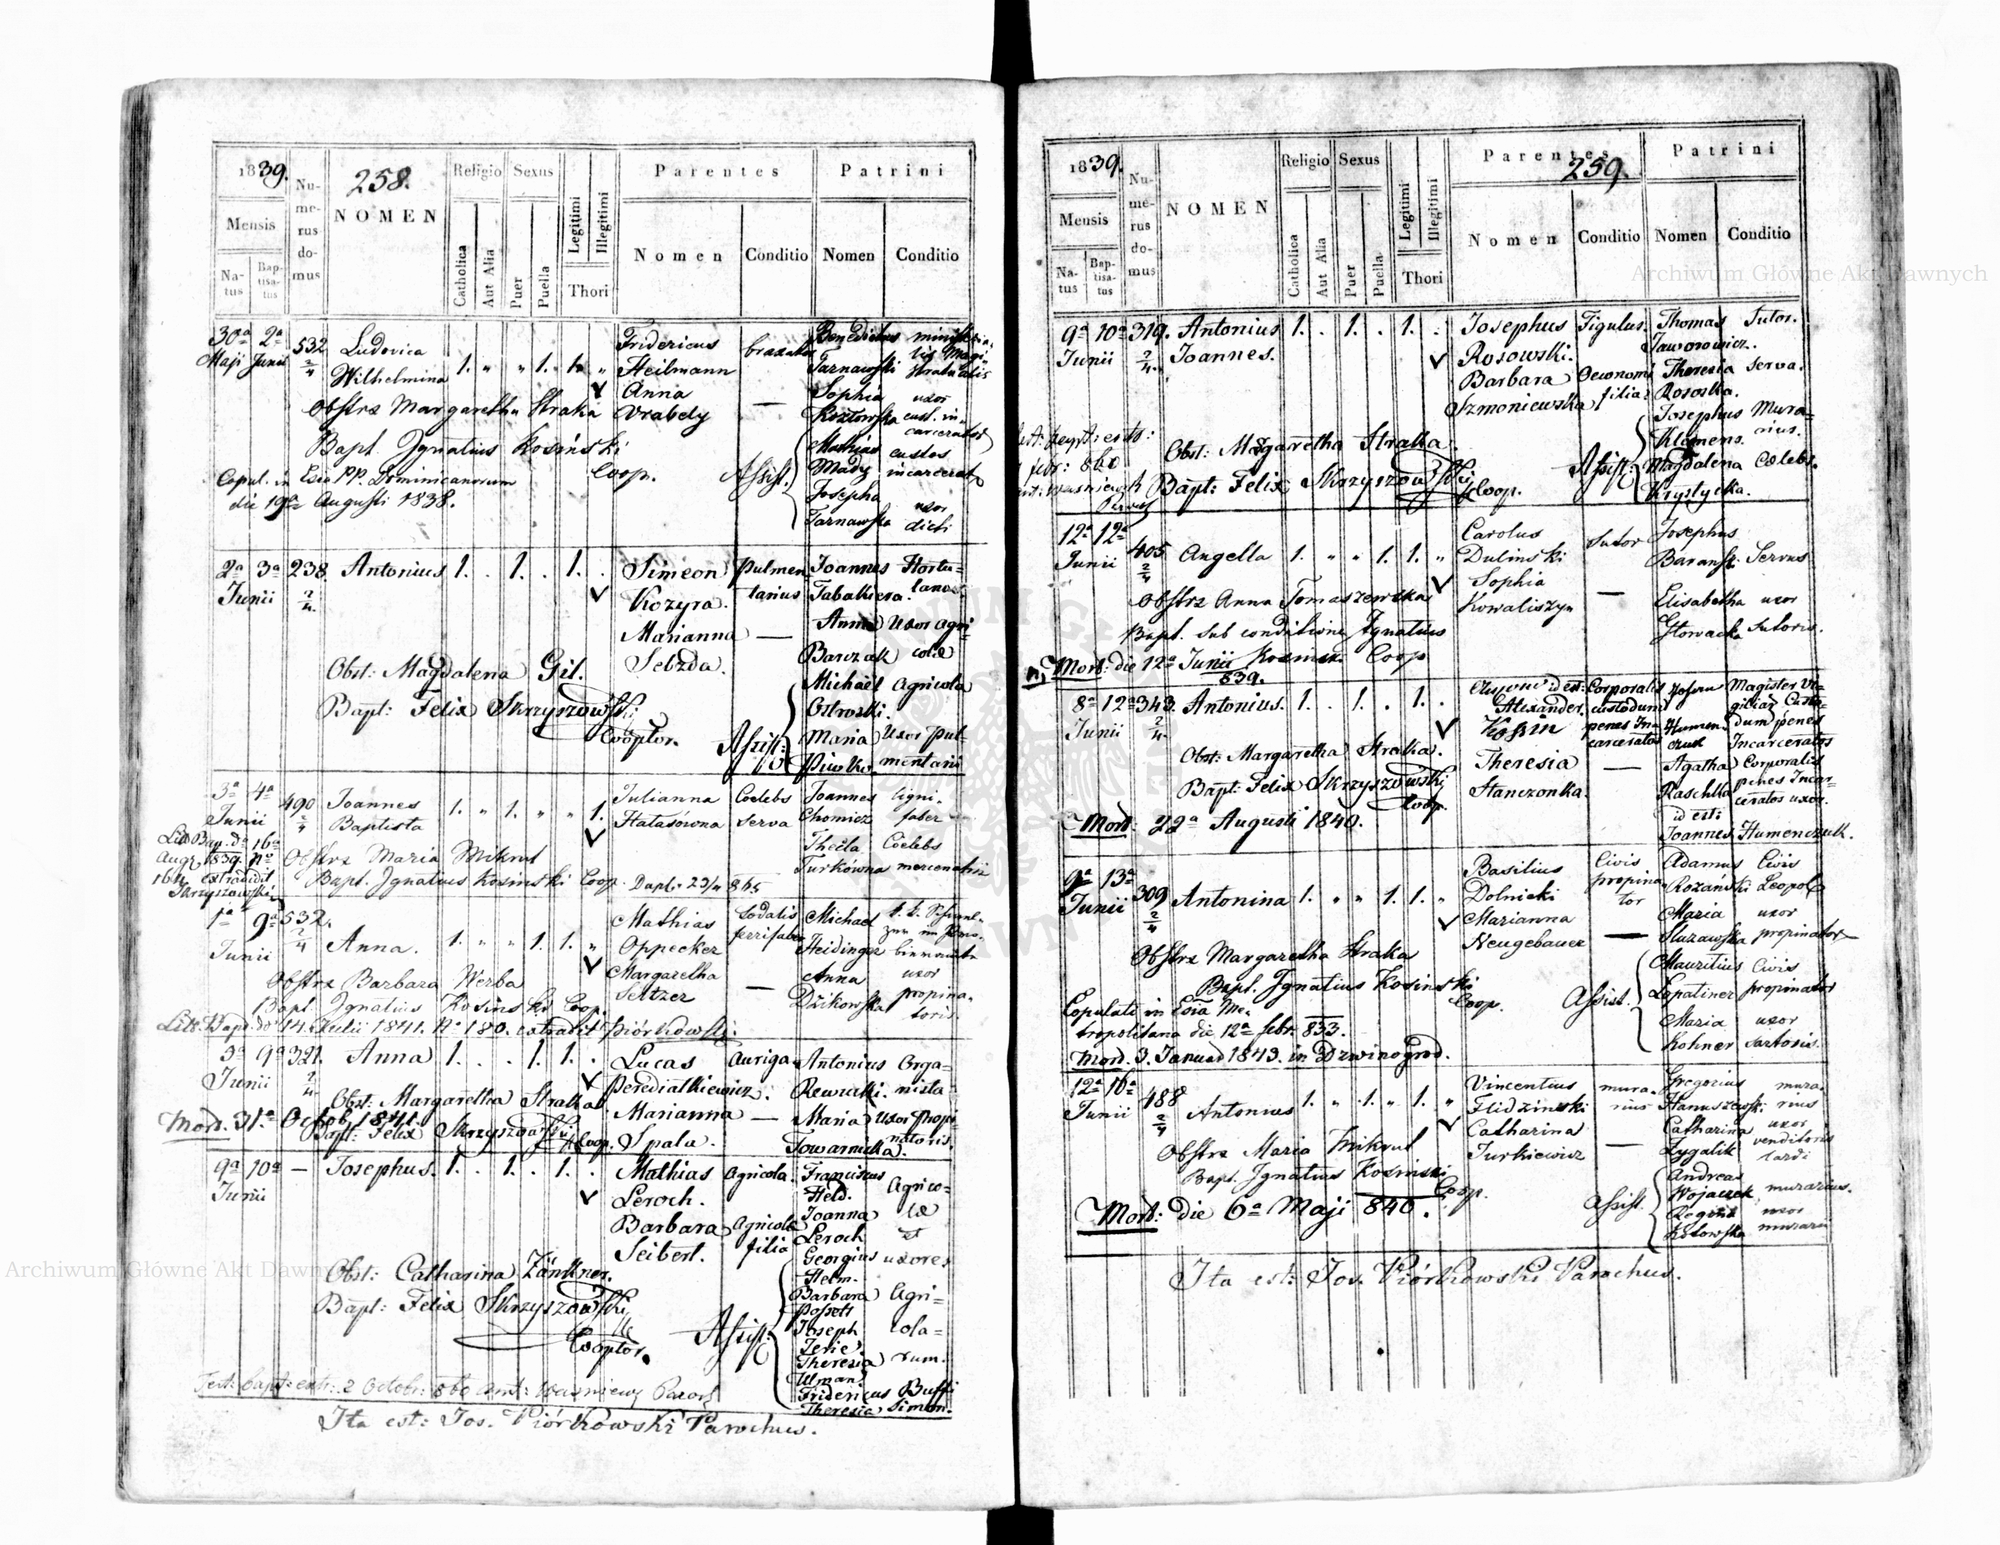 1839.
258.
Mensis
Na-
tus
Bap-
tisa-
tus
Nu-
me-
rus
do-
mus
NOMEN
Religio
Catholica
Aut Alia
Sexus
Puer
Puella
Legitimi
Illegitimi
Thori
Parentes
Nomen
Conditio
Patrini
Nomen
Conditio
30a 2a 532 Ludovica 1. „ „ 1. 1. „ Fridericus Benedictus
Maji Junii 2/4 Wilhelmina Heilmann Tarnawski
Anna Sophia uxor
Obstrx Margaretha Straka Vrabely — Kozłowska cust. in-
carceratos
Bapt. Ignatius Kosiński Coop. Assist. Mathias custos
Mady incarcerat
Copul. in Ecia PP. Dominicanorum Josepha uxor
die 19a Augusti 1838. Tarnawska dicti
2a 3a 238 Antonius 1. . 1. . 1. . Simeon Pulmen Joannes Hortu-
Junii 2/4 Kozyra. tarius Tabakiera. lanus
Marianna — Anna Uxor Agri-
Obst: Magdalena Gil. Sebzda. Barczak colæ
Bapt: Felix Skrzyszowski Michaël Agricola
Ostrowski.
Cooptor. Assist: Maria Uxor pul-
Piwko. mentarii
3a 4a 490 Joannes 1. „ 1. „ „ 1. Julianna Coelebs Joannes Ligni-
Junii 2/4 Baptista Hatasówna serva Chomicz faber
Lit. Bap. dd 16a
Aug. 1839 No
Obstrx Maria Mikrut Thecla Coelebs
164 extradidit
Bapt. Ignatius Kosinski Coop. Turkówna mercenaria
Skrzyszowski
1a 9a 532. Anna. 1. „ „ 1. 1. „ Mathias Sodalis Michael
Junii 2/4 Oppecker ferrifaber Heidinger
Obstrx Barbara Werba Margaretha — Anna uxor
Bapt. Ignatius Kosinski Coop. Seltzer Dzikowska propina-
toris.
Litt. Bapt. dd 14. Julii 1841. No 180. extradit Piórkowski.
3a 9a 321. Anna 1. . . 1. 1. . Lucas Auriga Antonius Orga-
Junii 2/4 Peredialkiewicz. Rewucki. nista
Obst: Margaretha Straka Marianna — Maria Uxor Propi
Mort. 31a Octob. 1841.
Bapt: Felix Skrzyszowski Coop. Spala. Towarnicka. natoris.
9a 10a — Josephus. 1. . 1. . 1. . Mathias Agricola. Franciscus
Junii Leroch. Held. Agrico-
Barbara Agricolæ Joanna læ
Seibert. filia Leroch et
Obst: Catharina Zänkner. Georgius uxores
Helm.
Bapt: Felix Skrzyszowski Barbara Agri-
Possett
Cooptor. Assist: Joseph cola-
Jerie.
Theresia rum.
Ulman.
Fridericus Buffi
Theresia Simon.
Test: bapt: extr: 2 Octobr: 860 Ant: Waśniewsk Paroch
Ita est: Jos. Piórkowski Parochus.
1839.
259.
Mensis
Na-
tus
Bap-
tisa-
tus
Nu-
me-
rus
do-
mus
NOMEN
Religio
Catholica
Aut Alia
Sexus
Puer
Puella
Legitimi
Illegitimi
Thori
Parentes
Nomen
Conditio
Patrini
Nomen
Conditio
9a 10a 319. Antonius 1. . 1. . 1. . Josephus Figulus. Thomas Sutor.
Junii 2/4. Joannes. Rosowski. Jaworowicz.
Barbara Oeconomi Theresia Serva.
Szmoniewska filia. Rososka.
Josephus Mura-
Obst: Margaretha Straka Klemens. rius.
Bapt: Felix Skrzyszowski Coop. Assist: Magdalena Coelebs.
Krystycka.
12a 12a 405 Angella 1. „ „ 1. 1. „ Carolus Sutor Josephus
Junii 2/4 Dulinski Baransk. Servus
Obstrx Anna Tomaszewska Sophia — Elisabetha uxor
Bapt. sub conditione Ignatius Kowaliszyn Głowacka Sutoris.
Mort: die 12a Junii 839. Kosinski Coop
8a 12a 343. Antonius. 1. . 1. . 1. . Alexander. Corporalis Magister Vi-
Junii 2/4 Kossin custodum giliar. Custo-
penes In- dum penes
carceratos Incarceratos
Obst: Margaretha Straka. Theresia — Agatha Corporalis
Bapt: Felix Skrzyszowski Coop. Stanczonka. Raschka penes Incar-
ceratos uxor.
Mort: 22a Augusti 1840. id est:
Joannes Humenczuk.
9a 13a 309 Antonina 1. „ „ 1. 1. „ Basilius Civis Adamus Civis
Junii 2/4 Dolnicki propina Rozański Leopol
tor
Marianna Maria uxor
Neugebauer — Sluzawska propinator
Obstrx Margaretha Straka Mauritius Civis
Bapt. Ignatius Kosinski Coop. Assist. Lopatiner propinator
Copulati in Ecia Me- Maria uxor
tropolitana die 12a febr. 833. Kohner sartoris.
Mort. 3. Januar 1843. in Dzwinogrod.
12a 16a 488 Antonius 1. „ 1. „ 1. „ Vincentius mura- Gregorius mura-
Junii 2/4 Flidzinski rius Hanuszewski rius
Catharina Catharina uxor
Obstrx Maria Mikrut Turkiewicz — Zygalik venditoris
Bapt. Ignatius Kosinski Coop. lardi
Assist. Andreas
Wojaczek murarius.
Mort: die 6a Maji 840. Regina uxor
Kotowska murarii
Ita est: Jos. Piórkowski Parochus.
Archiwum Główne Akt Dawnych
Archiwum Główne Akt Dawnych